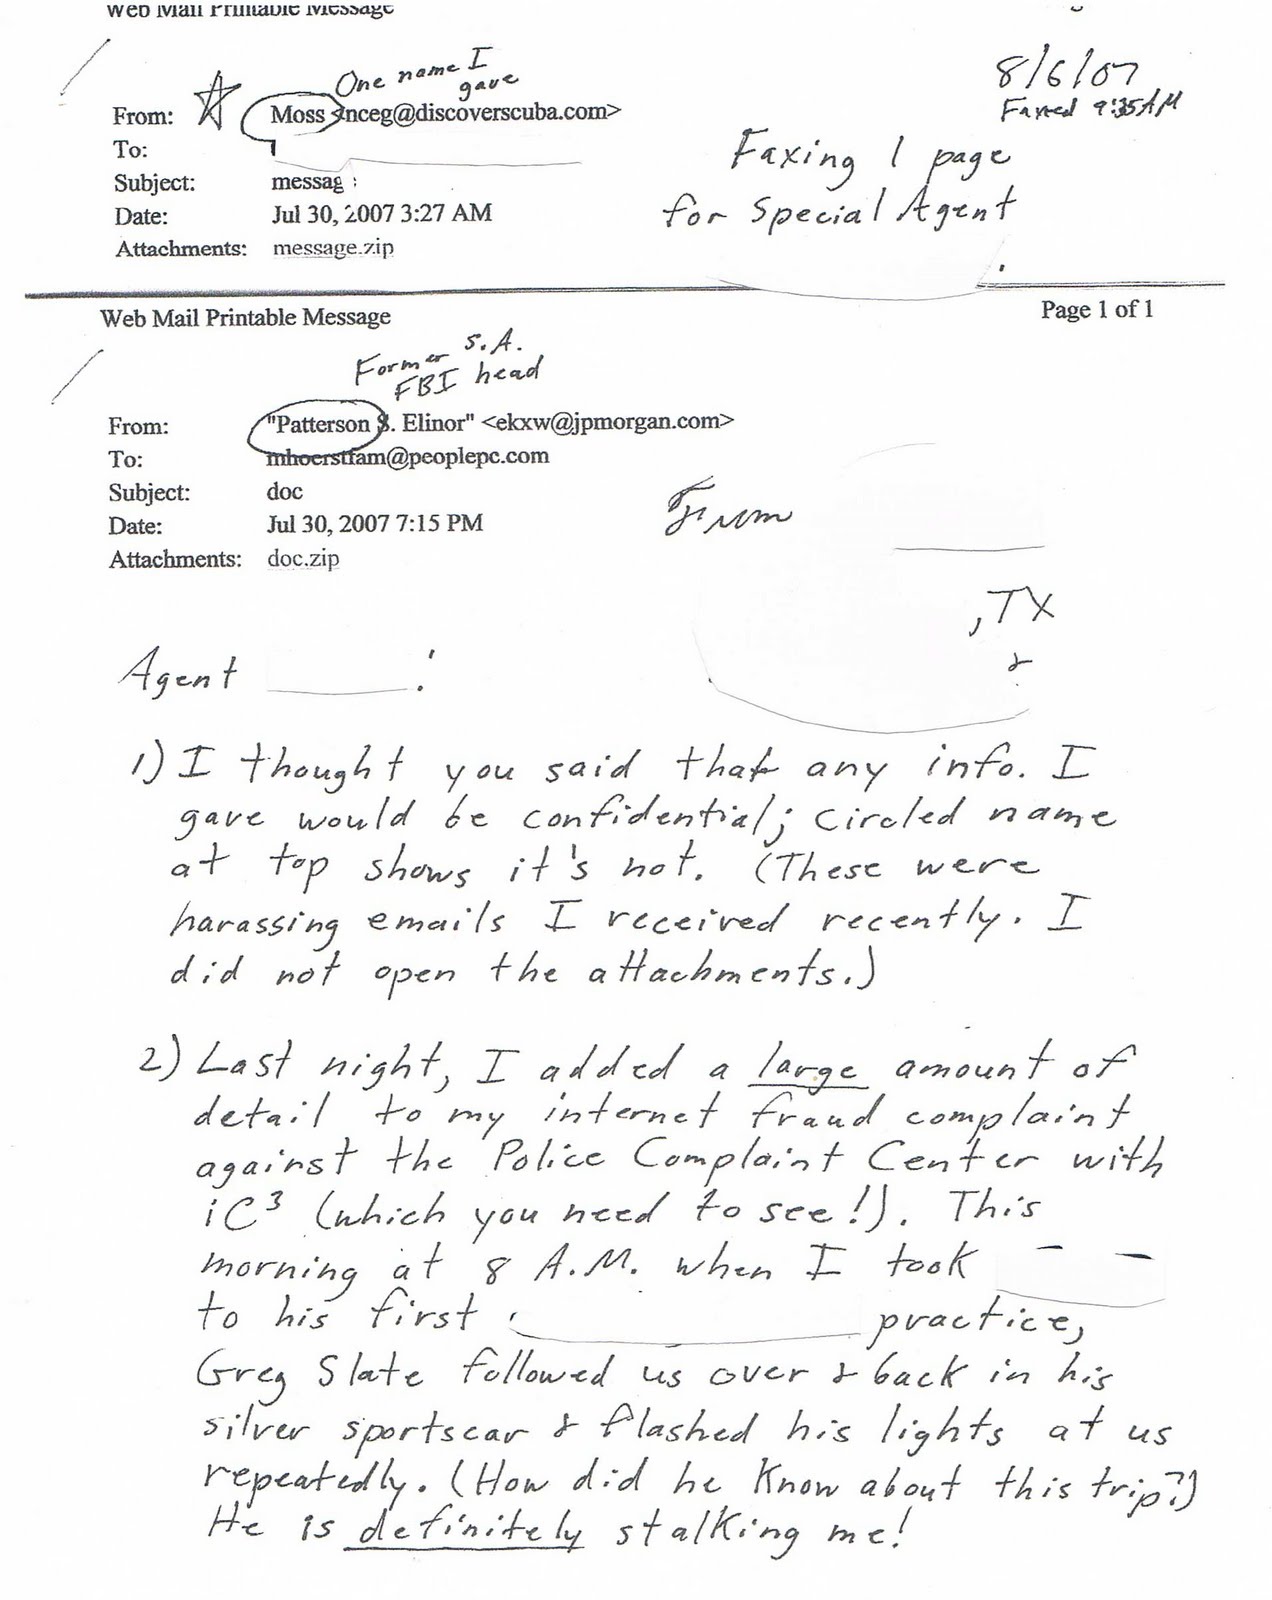 Web Mail Printable Message
One name I
gave
8/6/07
Faxed 9:35 AM
From: Moss <inceg@discoverscuba.com>
To:
Subject: messag
Date: Jul 30, 2007 3:27 AM
Attachments: message.zip
Faxing 1 page
for Special Agent
Web Mail Printable Message
Page 1 of 1
Former S.A.
FBI head
From: "Patterson S. Elinor" <ekxw@jpmorgan.com>
To: mhoerstfam@peoplepc.com
Subject: doc
Date: Jul 30, 2007 7:15 PM
Attachments: doc.zip
From
, TX
Agent :
1) I thought you said that any info. I
gave would be confidential; circled name
at top shows it's not. (These were
harassing emails I received recently. I
did not open the attachments.)
2) Last night, I added a large amount of
detail to my internet fraud complaint
against the Police Complaint Center with
iC3 (which you need to see!). This
morning at 8 A.M. when I took
to his first practice,
Greg Slate followed us over & back in his
silver sportscar & flashed his lights at us
repeatedly. (How did he know about this trip?)
He is definitely stalking me!